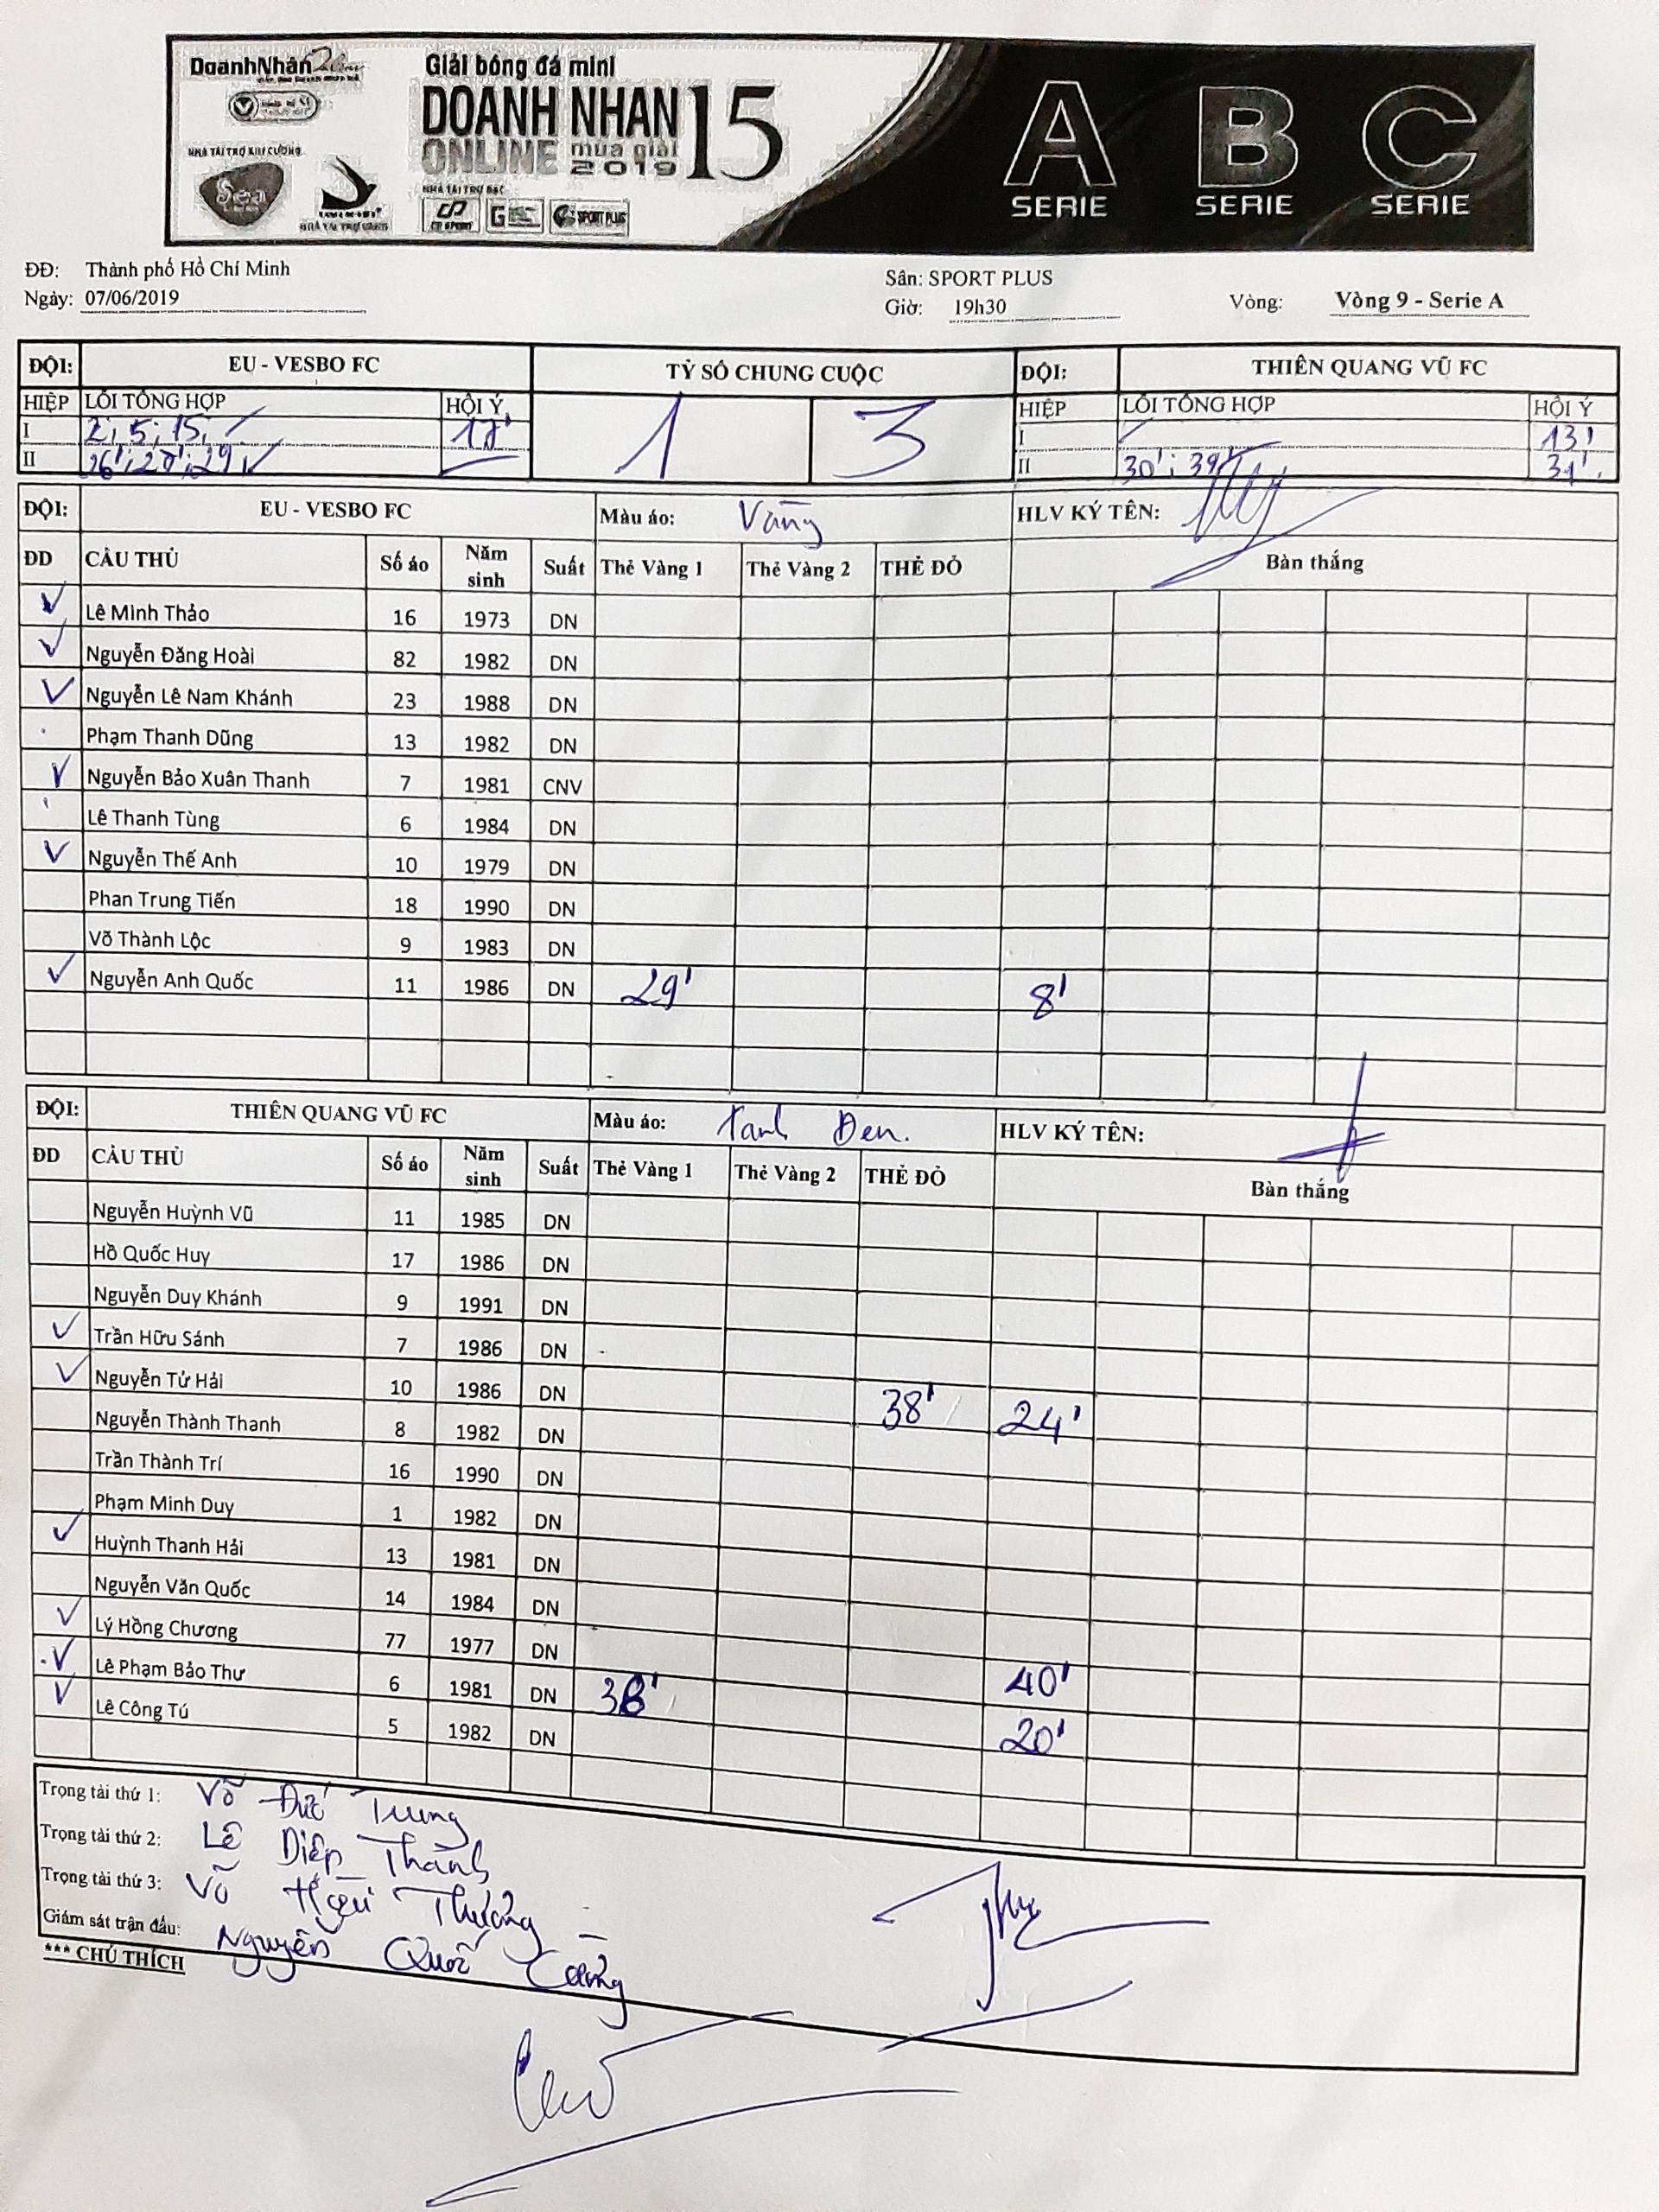 DoanhNhân
Giải bóng đá mini
DOANH NHAN 15
ONLINE mua giai 2019
NHÀ TÀI TRỢ KIM CƯƠNG
Sea
NHÀ TÀI TRỢ VÀNG
NHÀ TÀI TRỢ BẠC
SPORT PLUS
A SERIE B SERIE C SERIE
ĐĐ: Thành phố Hồ Chí Minh Sân: SPORT PLUS
Ngày: 07/06/2019 Giờ: 19h30 Vòng: Vòng 9 - Serie A
ĐỘI: EU - VESBO FC TỶ SỐ CHUNG CUỘC ĐỘI: THIÊN QUANG VŨ FC
HIỆP LỖI TỔNG HỢP HỘI Ý 1 3 HIỆP LỖI TỔNG HỢP HỘI Ý
I 2; 5; 15; I 13'
II 26'; 29 II 30'; 39' 31'
ĐỘI: EU - VESBO FC Màu áo: Vàng HLV KÝ TÊN:
ĐD CẦU THỦ Số áo Năm sinh Suất Thẻ Vàng 1 Thẻ Vàng 2 THẺ ĐỎ Bàn thắng
Lê Minh Thảo 16 1973 DN
Nguyễn Đăng Hoài 82 1982 DN
Nguyễn Lê Nam Khánh 23 1988 DN
Phạm Thanh Dũng 13 1982 DN
Nguyễn Bảo Xuân Thanh 7 1981 CNV
Lê Thanh Tùng 6 1984 DN
Nguyễn Thế Anh 10 1979 DN
Phan Trung Tiến 18 1990 DN
Võ Thành Lộc 9 1983 DN
Nguyễn Anh Quốc 11 1986 DN 29' 8'
ĐỘI: THIÊN QUANG VŨ FC Màu áo: Xanh Đen. HLV KÝ TÊN:
ĐD CẦU THỦ Số áo Năm sinh Suất Thẻ Vàng 1 Thẻ Vàng 2 THẺ ĐỎ Bàn thắng
Nguyễn Huỳnh Vũ 11 1985 DN
Hồ Quốc Huy 17 1986 DN
Nguyễn Duy Khánh 9 1991 DN
Trần Hữu Sánh 7 1986 DN
Nguyễn Tử Hải 10 1986 DN 38' 24'
Nguyễn Thành Thanh 8 1982 DN
Trần Thành Trí 16 1990 DN
Phạm Minh Duy 1 1982 DN
Huỳnh Thanh Hải 13 1981 DN
Nguyễn Văn Quốc 14 1984 DN
Lý Hồng Chương 77 1977 DN
Lê Phạm Bảo Thư 6 1981 DN 38' 40'
Lê Công Tú 5 1982 DN 20'
Trọng tài thứ 1: Võ Đức Trung
Trọng tài thứ 2: Lê Diệp Thành
Trọng tài thứ 3: Võ Hữu Thưởng
Giám sát trận đấu: Nguyễn Quốc
*** CHÚ THÍCH